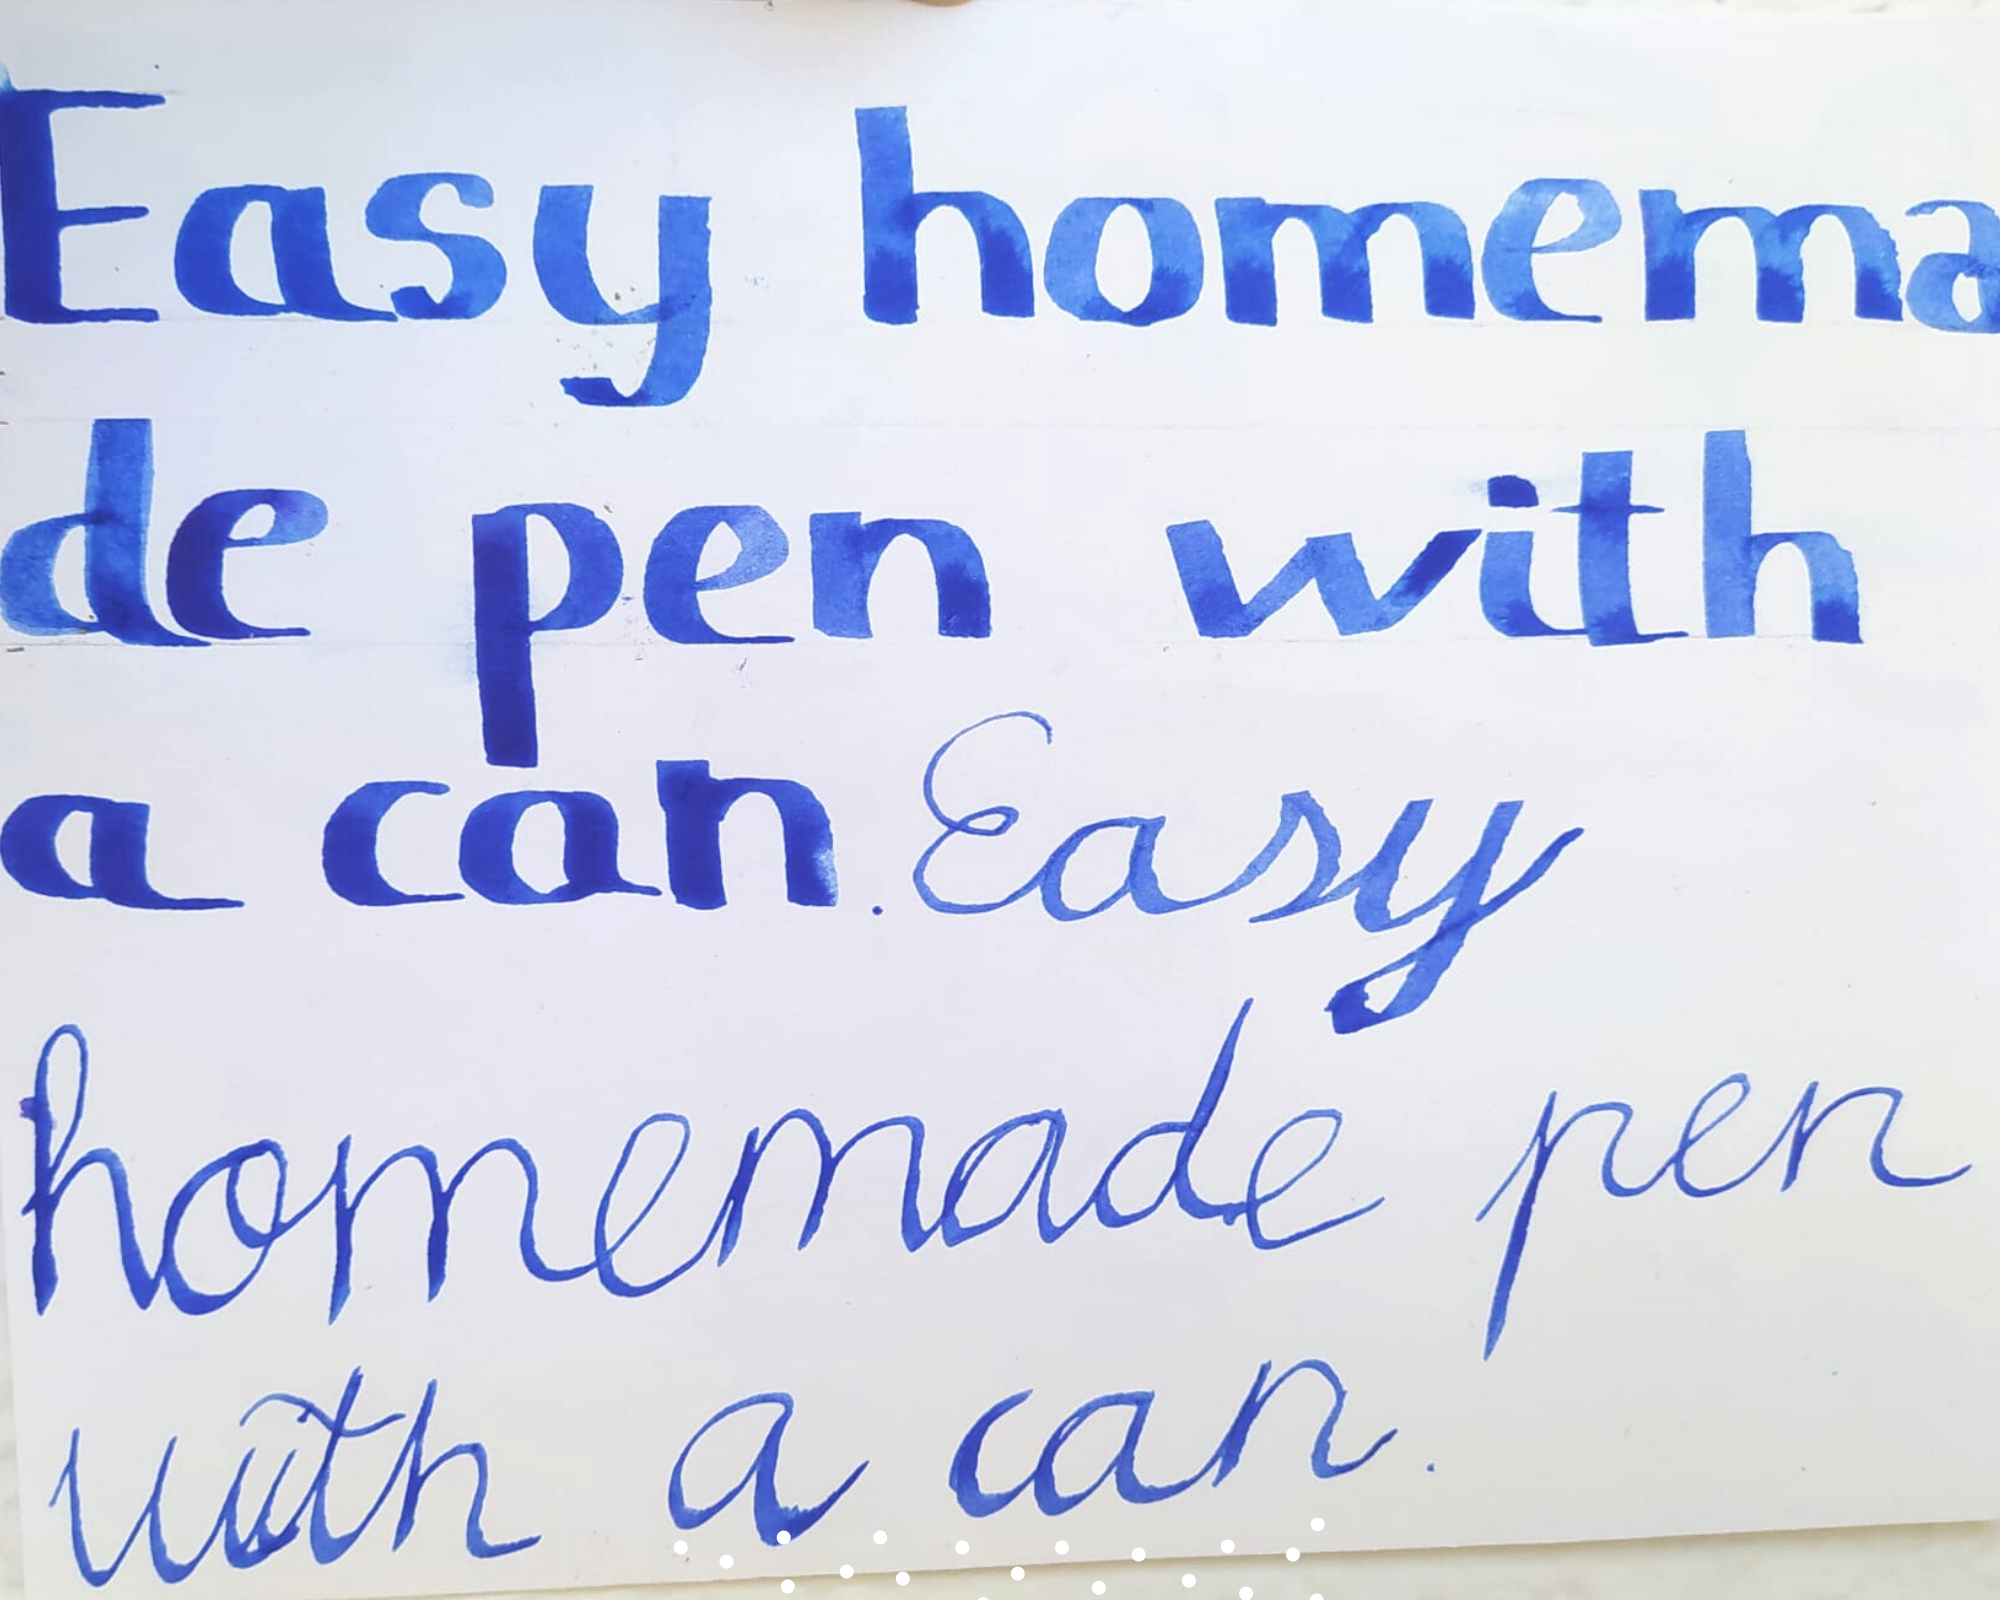 Easy homema
de pen with
a can. Easy
homemade pen
with a can.